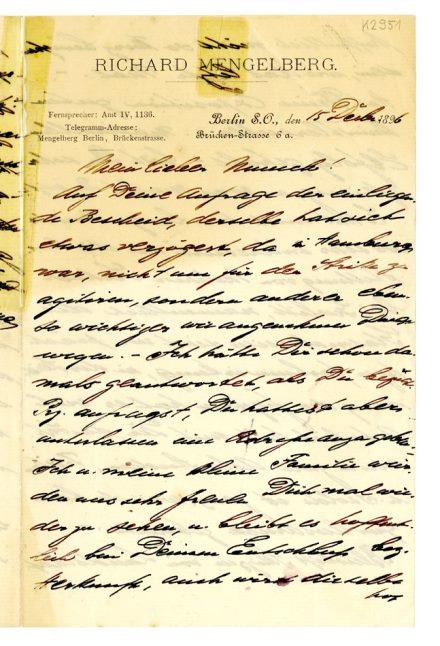 K2951
RICHARD MENGELBERG.
Fernsprecher: Amt IV, 1136.
Telegramm-Adresse:
Mengelberg Berlin, Brückenstrasse.
Berlin S.O., den 15 Decbr 1896
Brücken-Strasse 6 a.
Mein lieber Munch!
Auf Deine Anfrage der einliegen
de Bescheid, derselbe hat sich
etwas verzögert, da in Hamburg
war, nicht um für den Strike z
agitiren, sondern anderer eben
so wichtiger wie angenehmer Dinge
wegen. – Ich hätte Dir schon da
mals geantwortet, als Du
anfragst, Du hattest aber
unterlassen eine Adresse anzugeben.
Ich u. meine kleine Familie wür
den uns sehr freuen Dich mal wie
der zu sehen, u. bleibt es hoffent
lich bei Deinem Entschluß bez
Herkunft, auch wird dieselbe